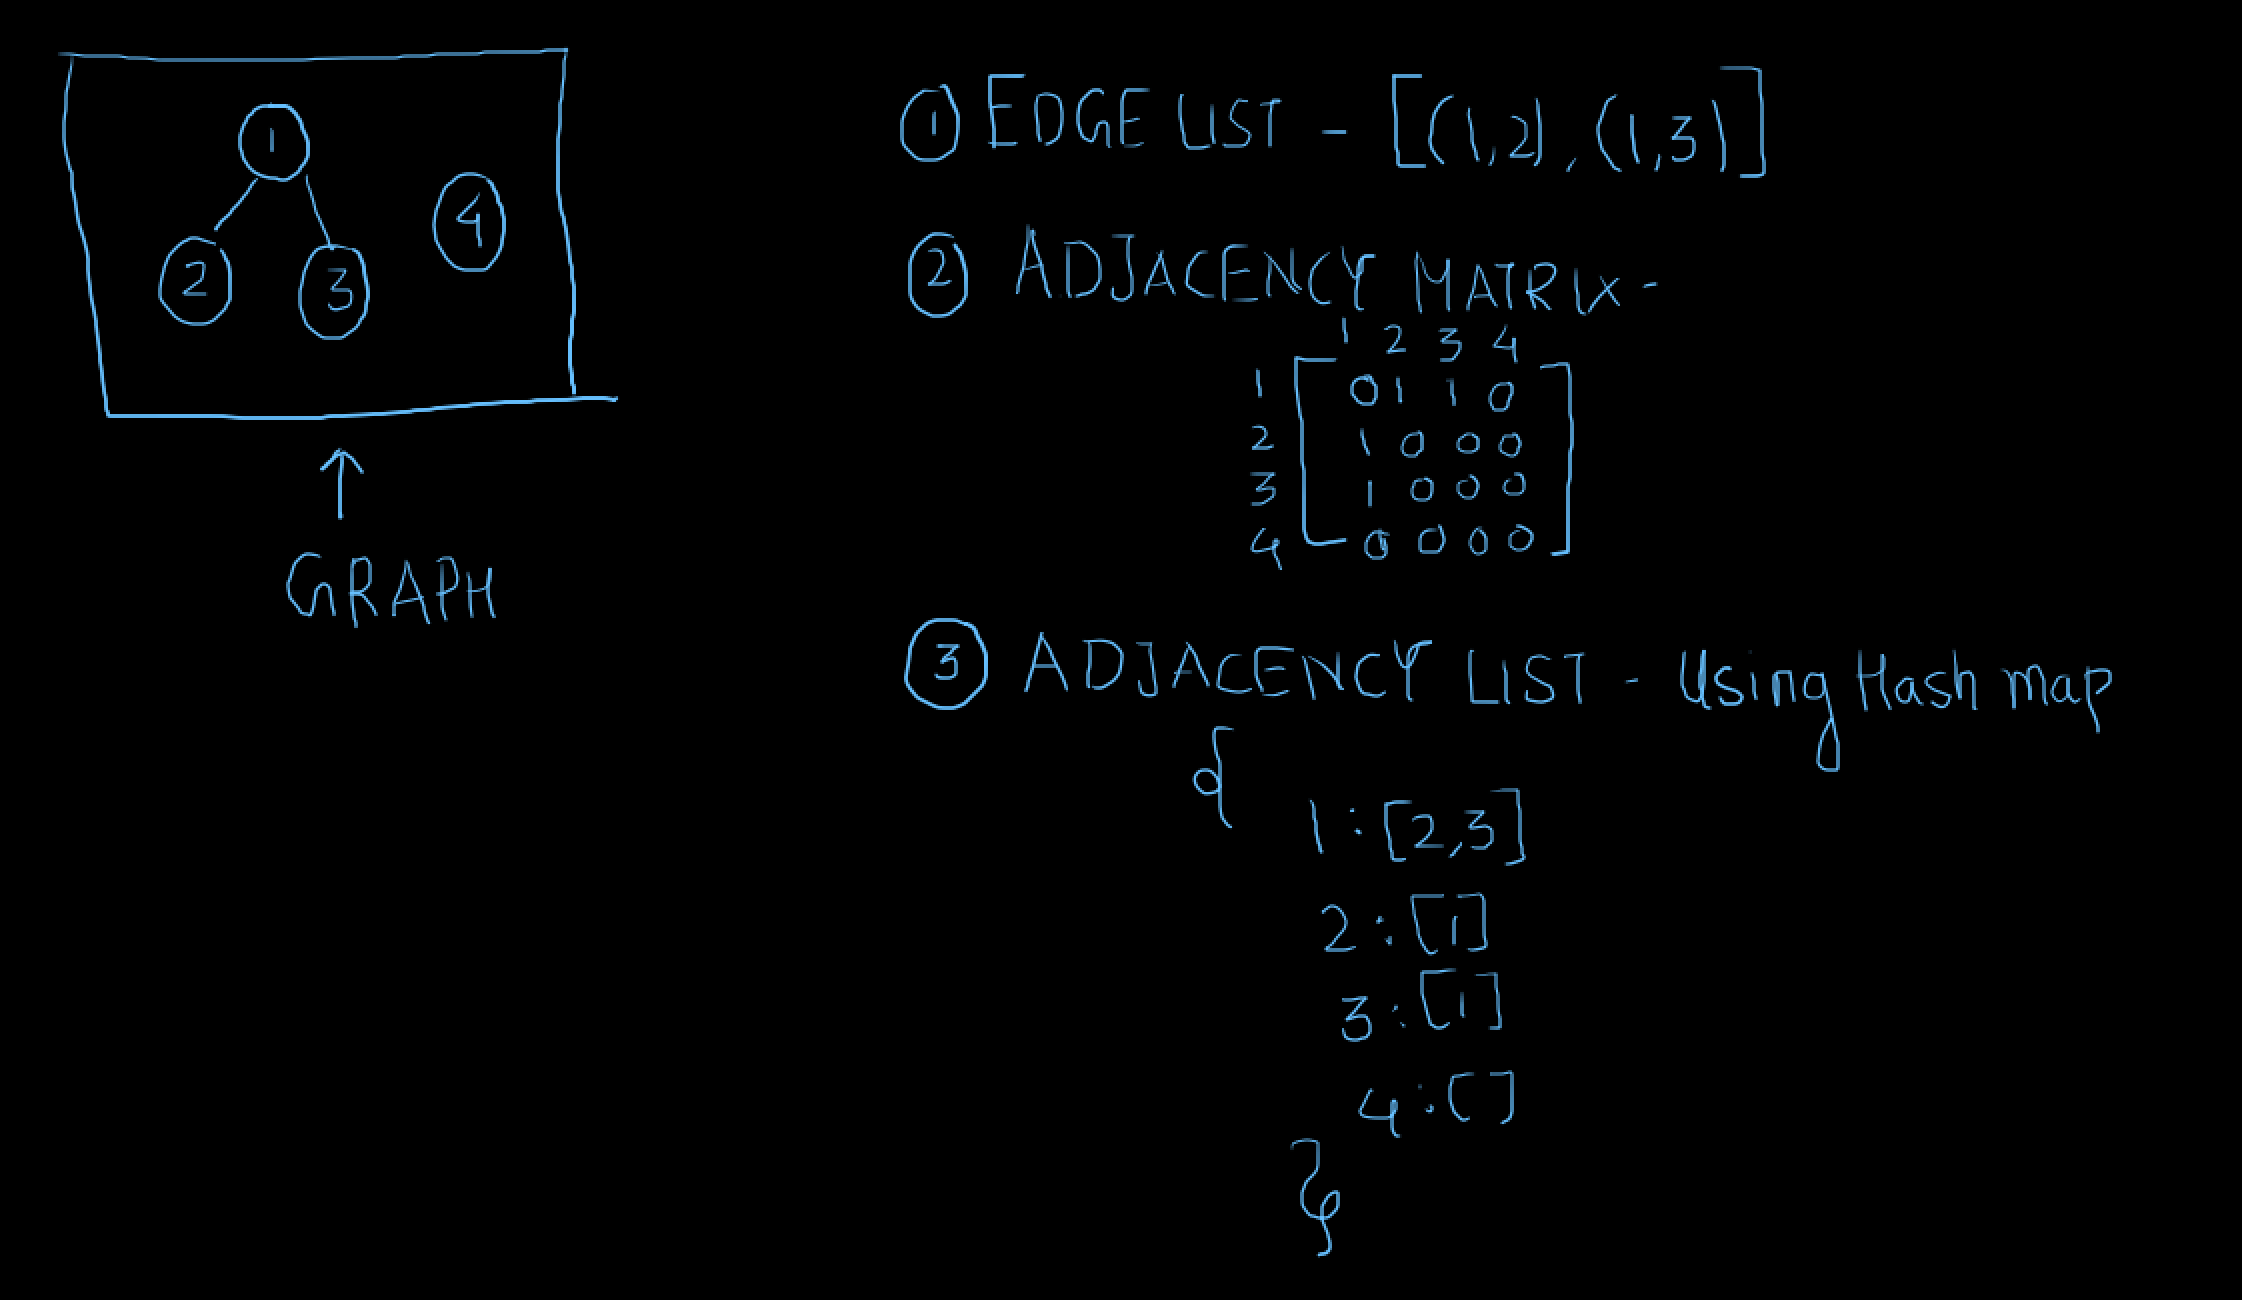 1
2 3 4
GRAPH
① EDGE LIST - [(1,2), (1,3)]
② ADJACENCY MATRIX -
1 2 3 4
1 [ 0 1 1 0 ]
2 1 0 0 0
3 1 0 0 0
4 0 0 0 0
③ ADJACENCY LIST - Using Hash map
{
1 : [2,3]
2 : [1]
3 : [1]
4 : []
}